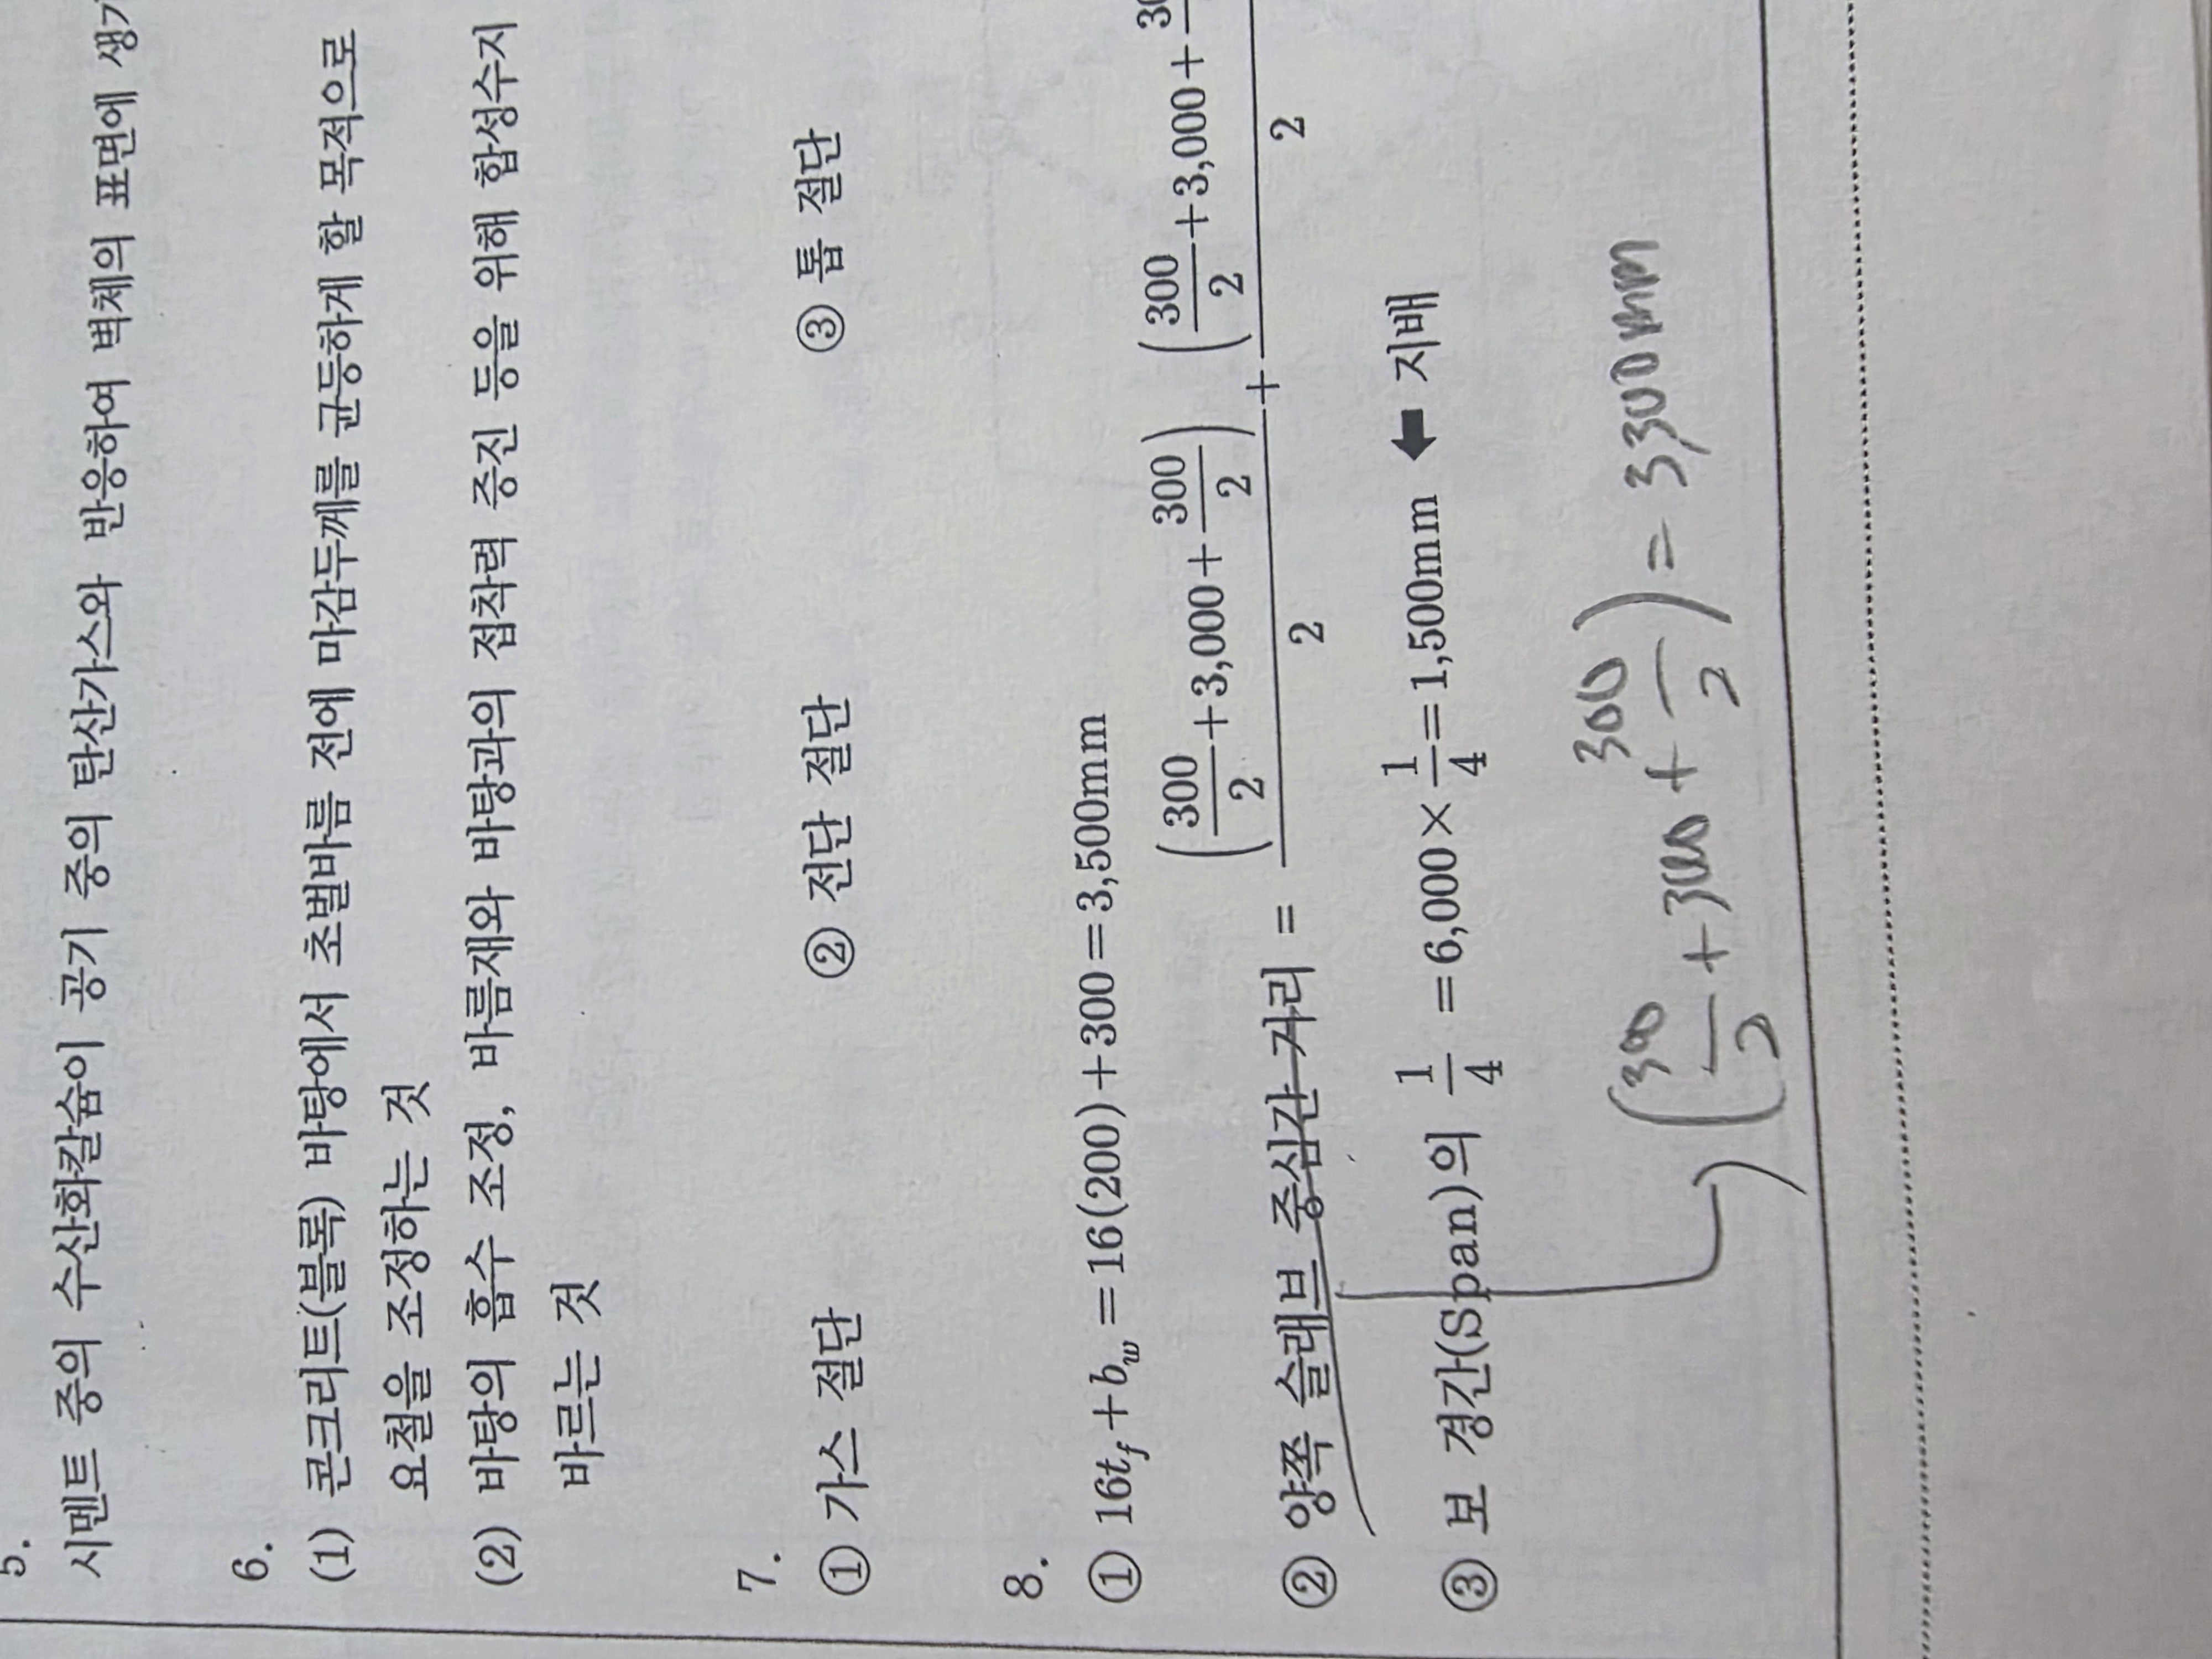 5.
시멘트 중의 수산화칼슘이 공기 중의 탄산가스와 반응하여 벽체의 표면에 생기
6.
(1) 콘크리트(블록) 바탕에서 초벌바름 전에 마감두께를 균등하게 할 목적으로
요철을 조정하는 것
(2) 바탕의 흡수 조정, 바름재와 바탕과의 접착력 증진 등을 위해 합성수지
바르는 것
7.
① 가스 절단 ② 전단 절단 ③ 톱 절단
8.
① 16t_f + b_w = 16(200)+300 = 3,500mm
② 양쪽 슬래브 중심간 거리 = (300/2 + 3,000 + 300/2)/2 + (300/2 + 3,000 + 30/2
③ 보 경간(Span)의 1/4 = 6,000 × 1/4 = 1,500mm ⬅ 지배
(300/2 + 3000 + 300/2) = 3,300mm